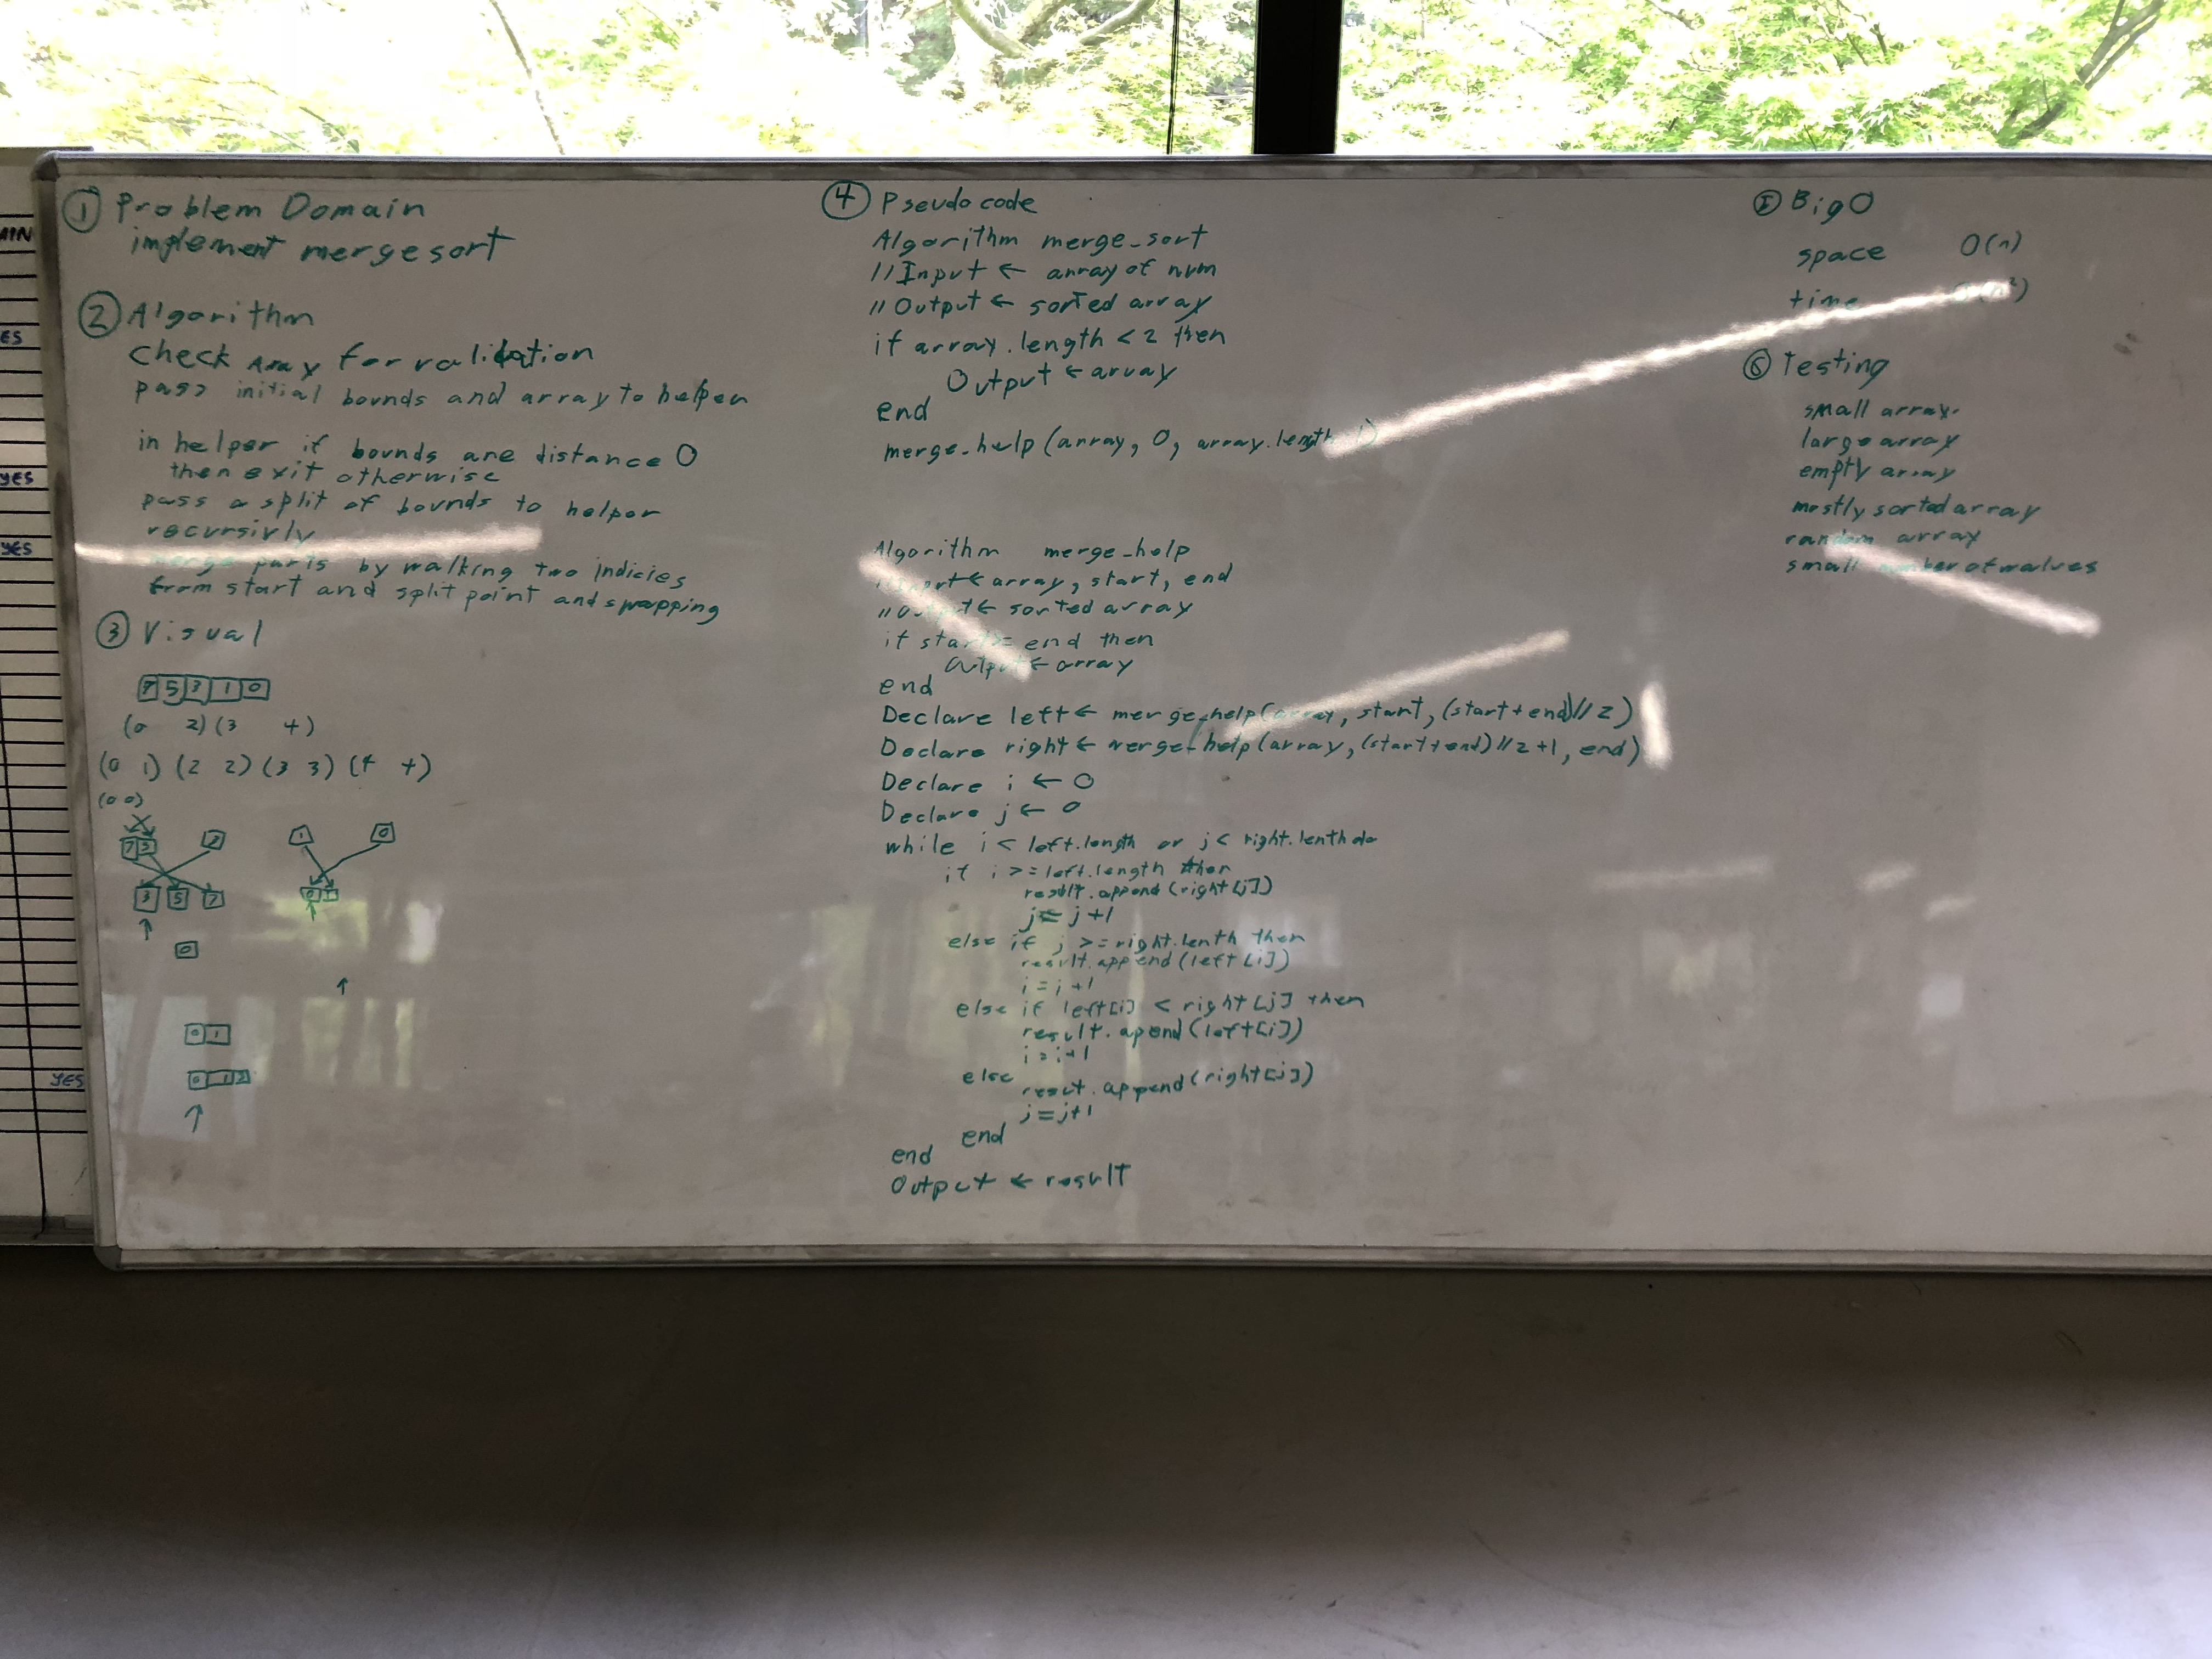 ① Problem Domain
implement mergesort
② Algorithm
Check Array for validation
pass initial bounds and array to helper
in helper if bounds are distance 0
then exit otherwise
pass a split of bounds to helper
recursivly
merge parts by walking two indicies
from start and split point and swapping
③ Visual
7 5 3 1 0
(0 2) (3 4)
(0 1) (2 2) (3 3) (4 4)
(0 0)
7 5 3 1 0
3 5 7 0 1
0
0 1
0 1 3
④ Pseudo code
Algorithm merge_sort
// Input ← array of num
// Output ← sorted array
if array.length < 2 then
Output ← array
end
merge_help (array, 0, array.length-1)
Algorithm merge_help
// Input ← array, start, end
// Output ← sorted array
if start >= end then
Output ← array
end
Declare left ← merge_help(array, start, (start+end)//2)
Declare right ← merge_help(array, (start+end)//2+1, end)
Declare i ← 0
Declare j ← 0
while i < left.length or j < right.lenth do
if i >= left.length then
result.append(right[j])
j = j+1
else if j >= right.lenth then
result.append(left[i])
i = i+1
else if left[i] < right[j] then
result.apend(left[i])
i = i+1
else
result.append(right[j])
j = j+1
end
end
Output ← result
Big O
space O(n)
time O(n²)
⑥ Testing
small array
large array
empty array
mostly sorted array
random array
small number of values
MIN
YES
YES
YES
YES